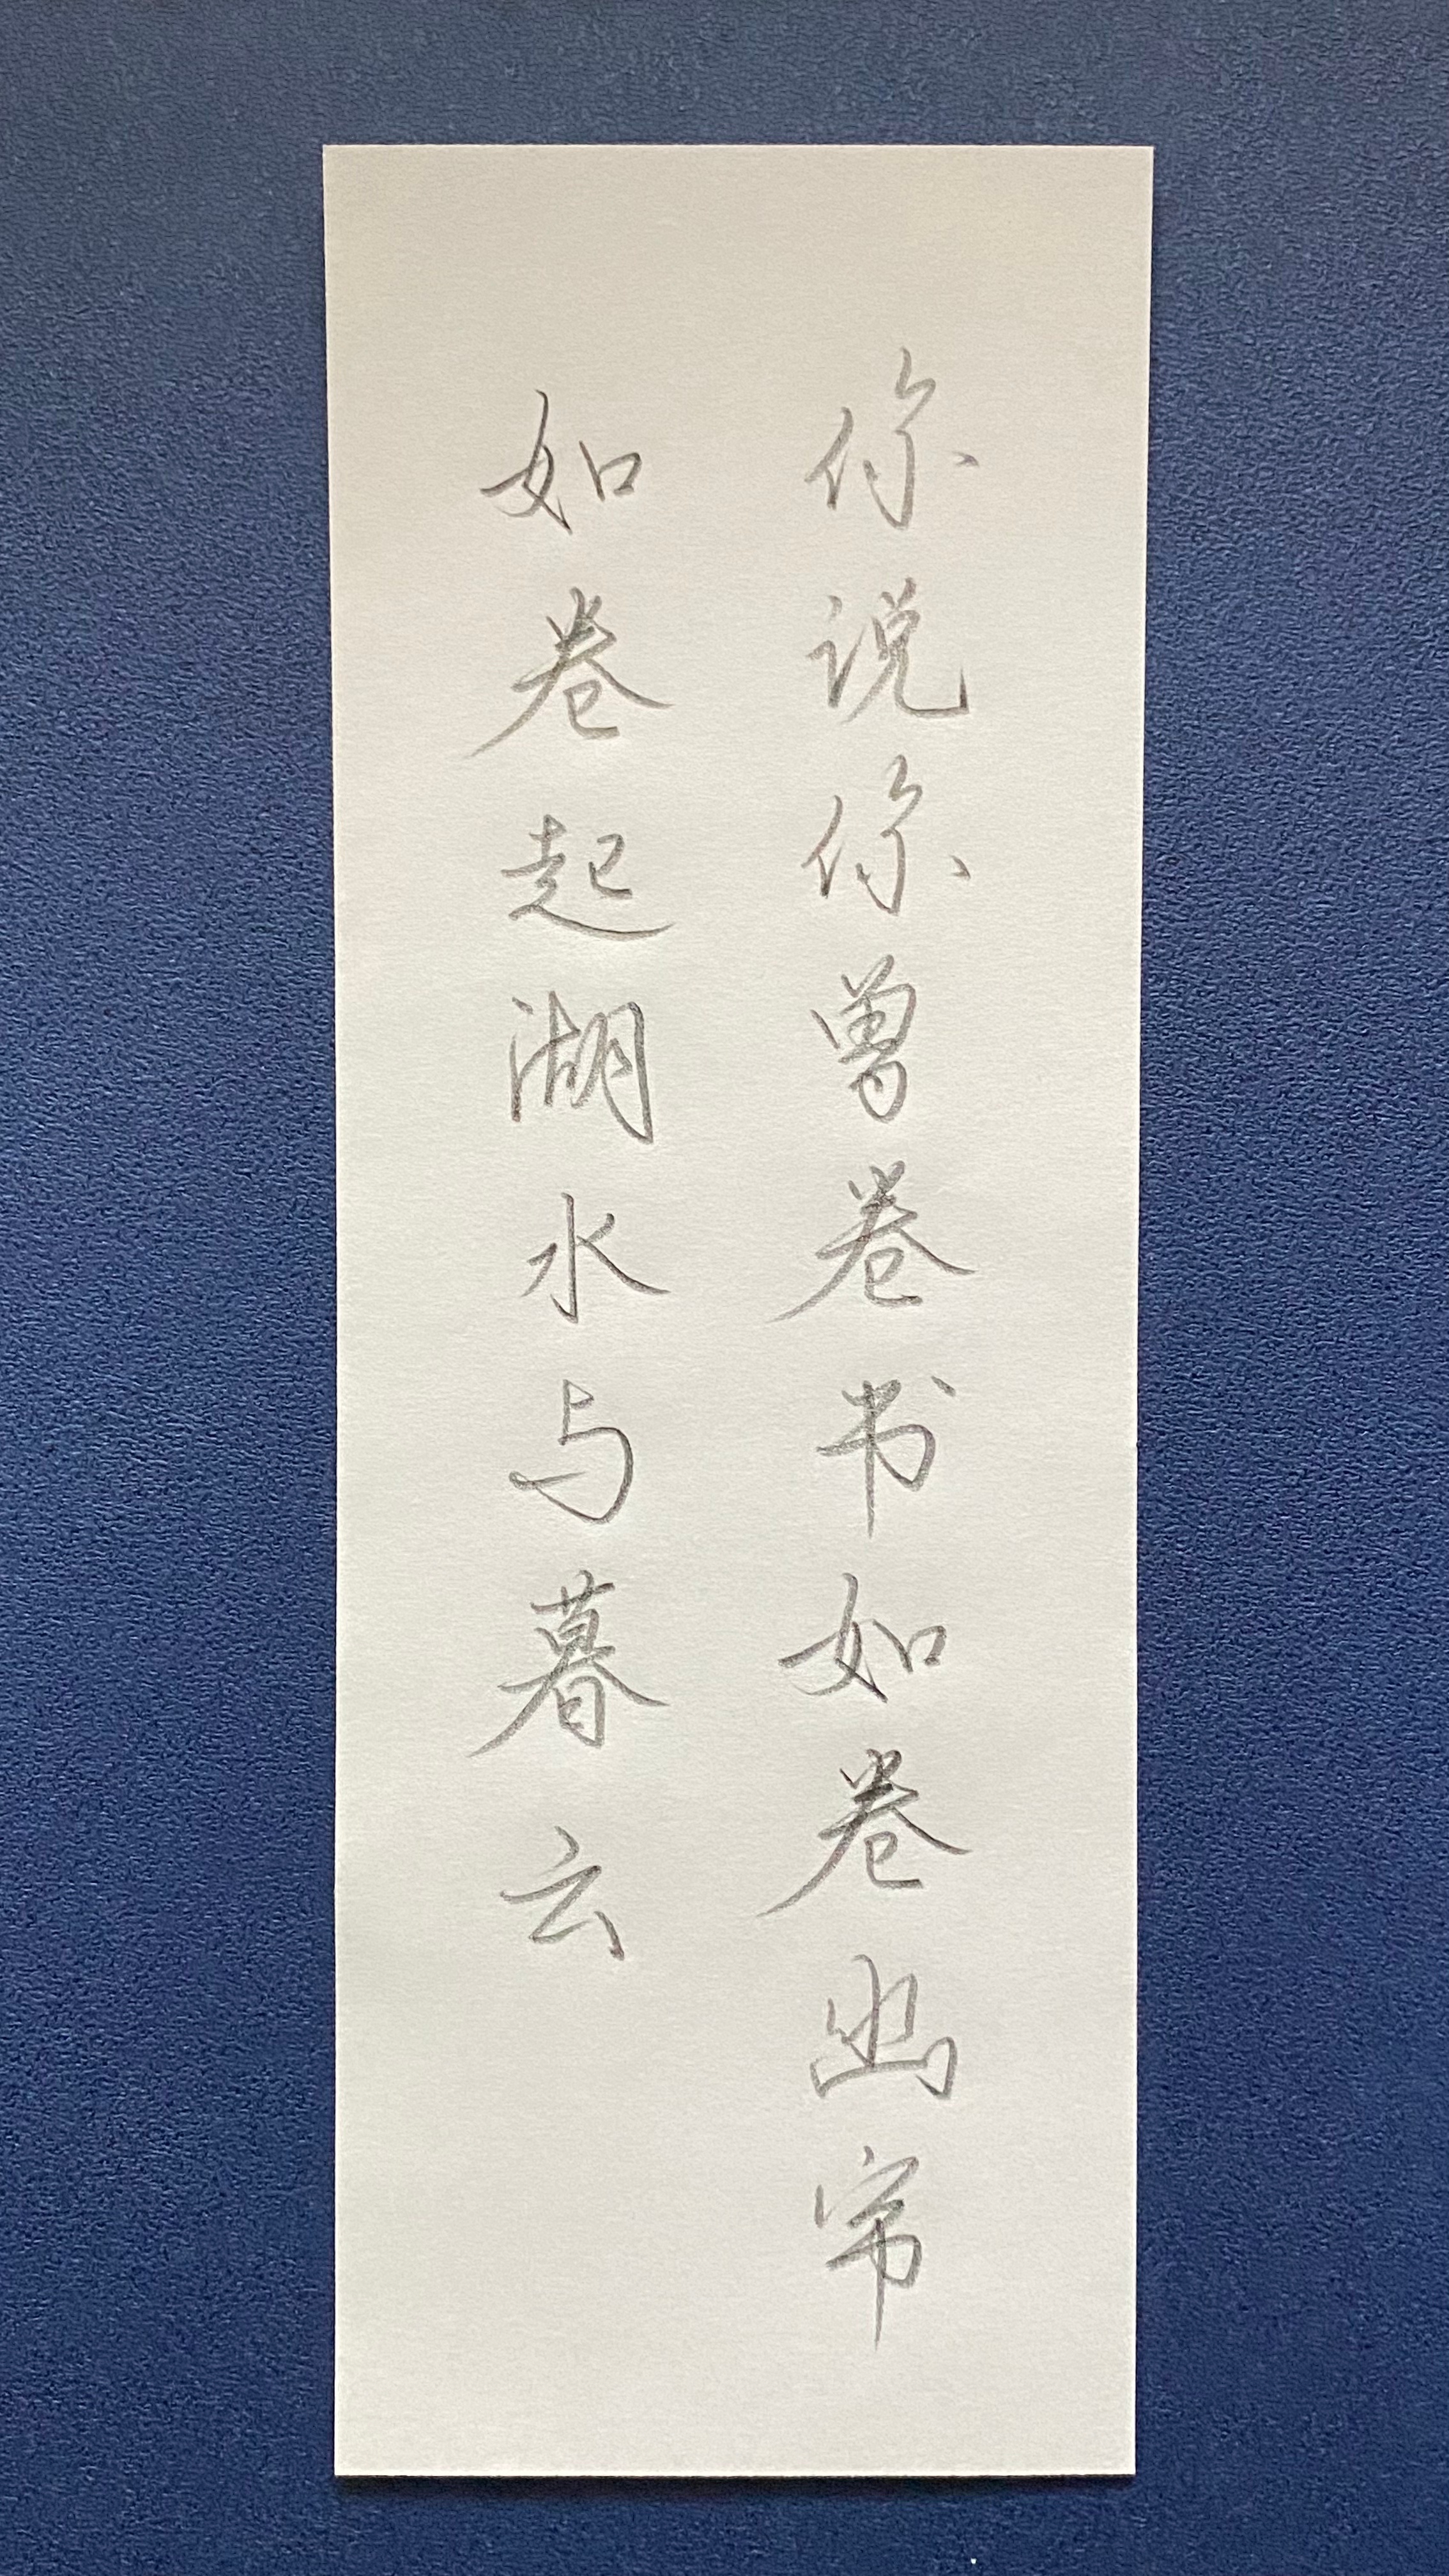 你说你曾卷书如卷幽帘
如卷起湖水与暮云